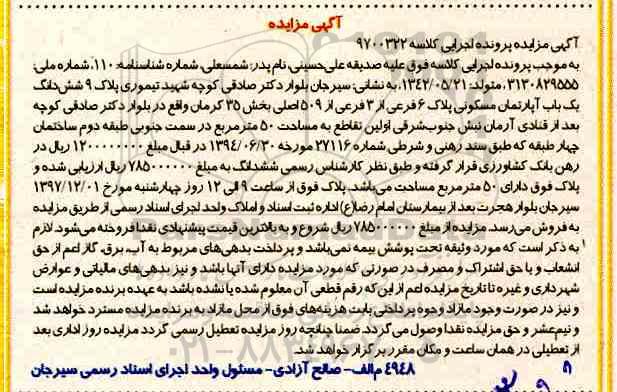 آگهی مزایده
آگهی مزایده پرونده اجرایی کلاسه ۹۷۰۰۳۲۲
به موجب پرونده اجرایی کلاسه فوق علیه صدیقه علی‌حسینی، نام پدر: شمسعلی، شماره شناسنامه: ۱۱۰، شماره ملی:
۳۱۳۰۸۲۹۵۵۵، متولد: ۱۳۴۲/۰۵/۲۱، به نشانی: سیرجان بلوار دکتر صادقی کوچه شهید تیموری پلاک ۹ شش‌دانگ
یک باب آپارتمان مسکونی پلاک ۶ فرعی از ۳ فرعی از ۵۰۹ اصلی بخش ۳۵ کرمان واقع در بلوار دکتر صادقی کوچه
بعد از قنادی آرمان نبش جنوب‌شرقی اولین تقاطع به مساحت ۵۰ مترمربع در سمت جنوبی طبقه دوم ساختمان
چهار طبقه که طبق سند رهنی و شرطی شماره ۲۷۱۱۶ مورخه ۱۳۹۴/۰۶/۳۰ در قبال مبلغ ۱۲۰۰۰۰۰۰۰۰ ریال در
رهن بانک کشاورزی قرار گرفته و طبق نظر کارشناس رسمی ششدانگ به مبلغ ۷۸۵۰۰۰۰۰۰ ریال ارزیابی شده و
پلاک فوق دارای ۵۰ مترمربع مساحت می‌باشد. پلاک فوق از ساعت ۹ الی ۱۲ روز چهارشنبه مورخ ۱۳۹۷/۱۲/۰۱
سیرجان بلوار هجرت بعد از بیمارستان امام رضا(ع) اداره ثبت اسناد و املاک واحد اجرای اسناد رسمی از طریق مزایده
به فروش می‌رسد. مزایده از مبلغ ۷۸۵۰۰۰۰۰۰ ریال شروع و به بالاترین قیمت پیشنهادی نقدا فروخته می‌شود. لازم
به ذکر است که مورد وثیقه تحت پوشش بیمه نمی‌باشد و پرداخت بدهی‌های مربوط به آب، برق، گاز اعم از حق
انشعاب و یا حق اشتراک و مصرف در صورتی که مورد مزایده دارای آنها باشد و نیز بدهی‌های مالیاتی و عوارض
شهرداری و غیره تا تاریخ مزایده اعم از این که رقم قطعی آن معلوم شده یا نشده باشد به عهده برنده مزایده است
و نیز در صورت وجود مازاد وجوه پرداختی بابت هزینه‌های فوق از محل مازاد به برنده مزایده مسترد خواهد شد
و نیم‌عشر و حق مزایده نقدا وصول می‌گردد. ضمنا چنانچه روز مزایده تعطیل رسمی گردد مزایده روز اداری بعد
از تعطیلی در همان ساعت و مکان مقرر برگزار خواهد شد.
۴۹۴۸ م‌الف- صالح آزادی- مسئول واحد اجرای اسناد رسمی سیرجان